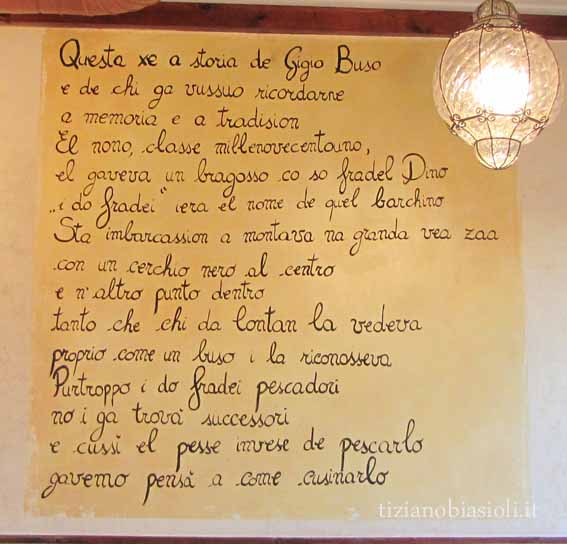 Questa xe a storia de Gigio Buso
e de chi ga vussuo ricordarne
a memoria e a tradision
El nono, classe millenovecentouno,
el gaveva un bragosso co so fradel Dino
„i do fradei" iera el nome de quel barchino
Sta imbarcassion a montava na granda vea zaa
con un cerchio nero al centro
e n'altro punto dentro
tanto che chi da lontan la vedeva
proprio come un buso i la riconosseva
Purtroppo i do fradei pescadori
no i ga trovà successori
e cussì el pesse invese de pescarlo
gavemo pensà a come cusinarlo
tizianobiasioli.it